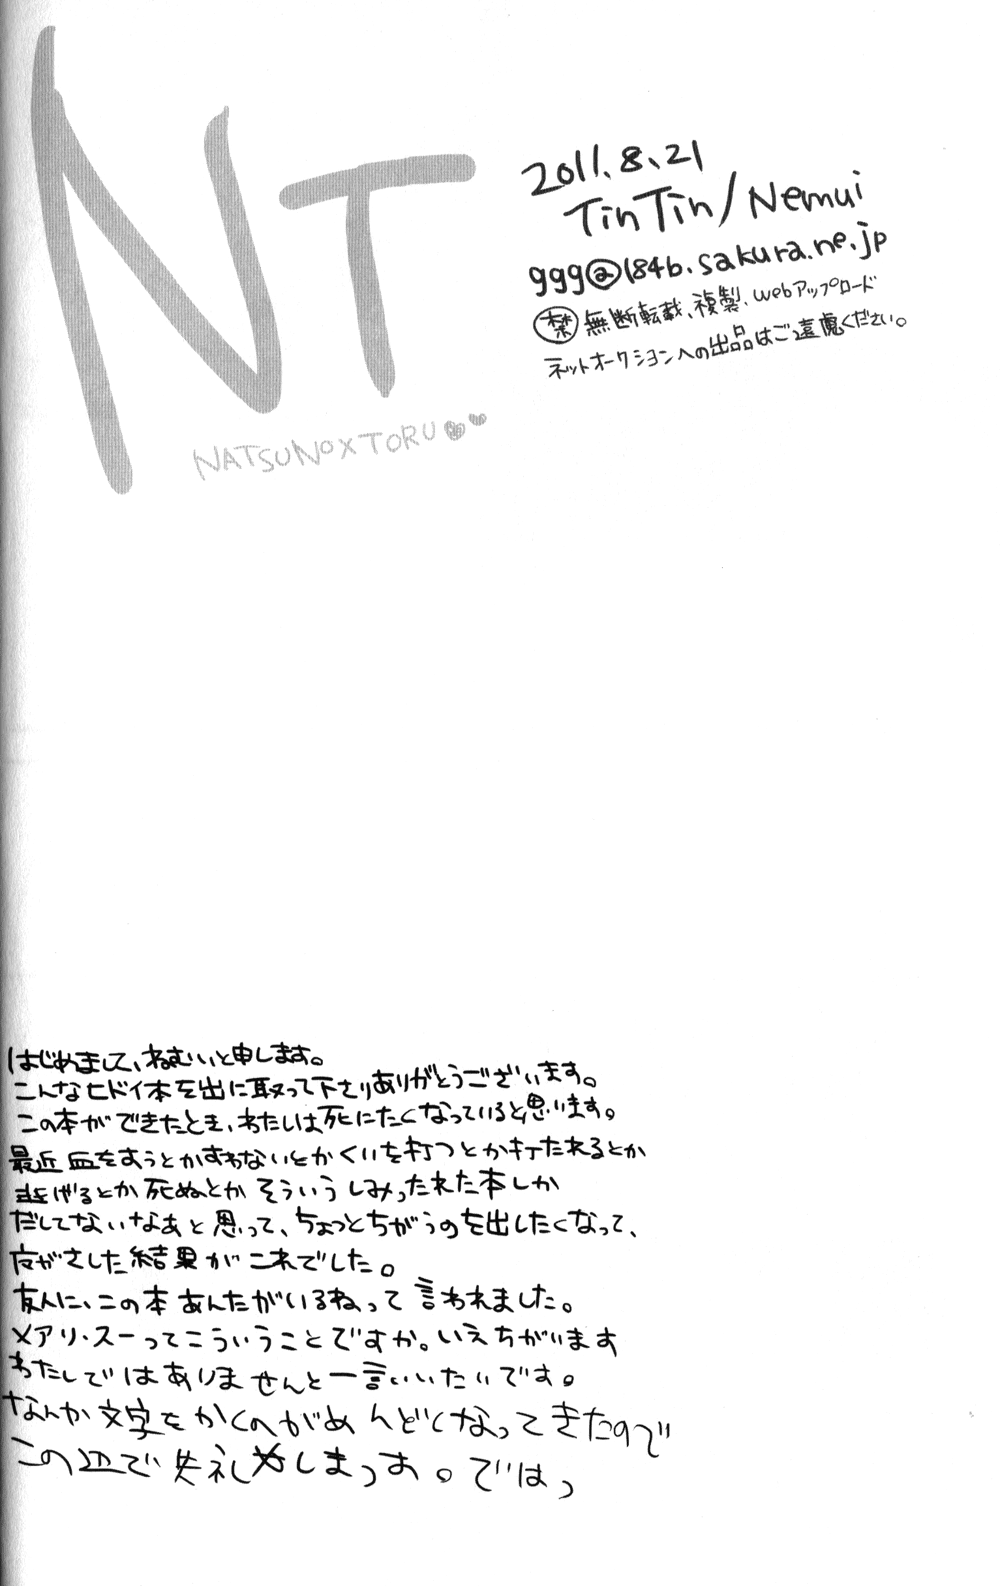 NT
NATSUNO×TORU
2011.8.21
TinTin/Nemui
ggg@184b.sakura.ne.jp
禁 無断転載、複製、webアップロード
ネットオークションへの出品はご遠慮ください。
はじめまして、ねむいと申します。
こんなヒドイ本を出に取って下さりありがとうございます。
この本ができたとき、わたしは死にたくなっていると思います。
最近血をすうとかすわないとかくいを打つとか打たれるとか
逃げるとか死ぬとかそういうしみったれた本しか
だしてないなあと思って、ちょっとちがうのを出したくなって、
がさした結果がこれでした。
友人に、この本あんたがいるねって言われました。
メアリ・スーってこういうことですか。いえちがいます
わたしではありませんと一言いいたいです。
なんか文字をかくのがめんどくなってきたので
この辺で失礼しまっす。ではっ